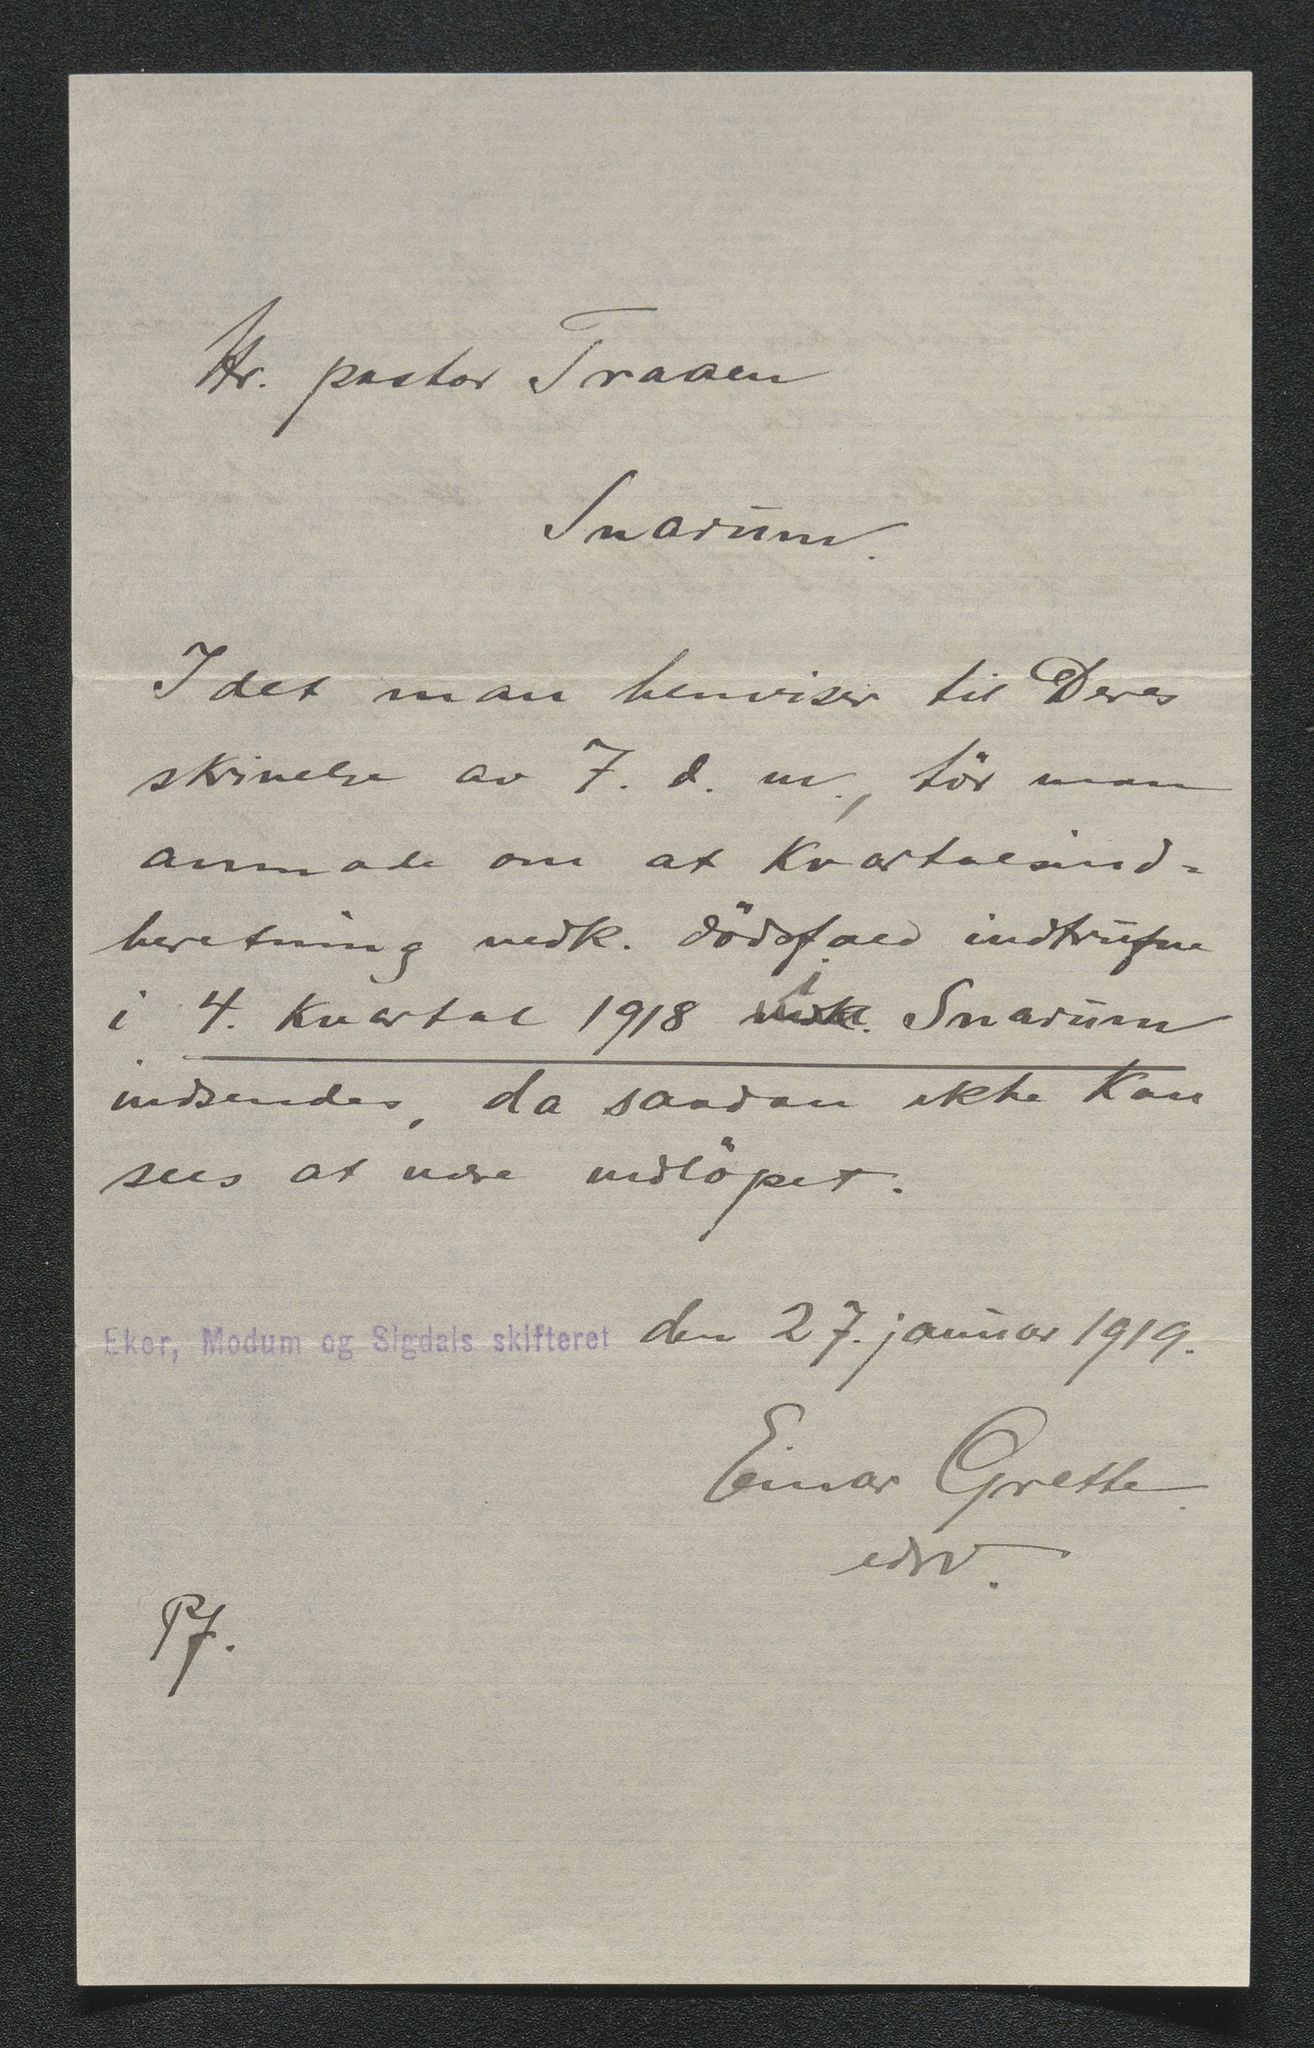 Hr. pastor Traaen
Snarum.
Idet man henviser til Deres
skrivelse av 7. d. m., tör man
anmode om at Kvartalsind-
beretning vedk. dödsfald indtrufne
i 4. Kvartal 1918 i Snarum
indsendes, da saadan ikke kan
sees at være indlöpet.
Eker, Modum og Sigdals skifteret den 27. januar 1919.
Einar Grette
edsv.